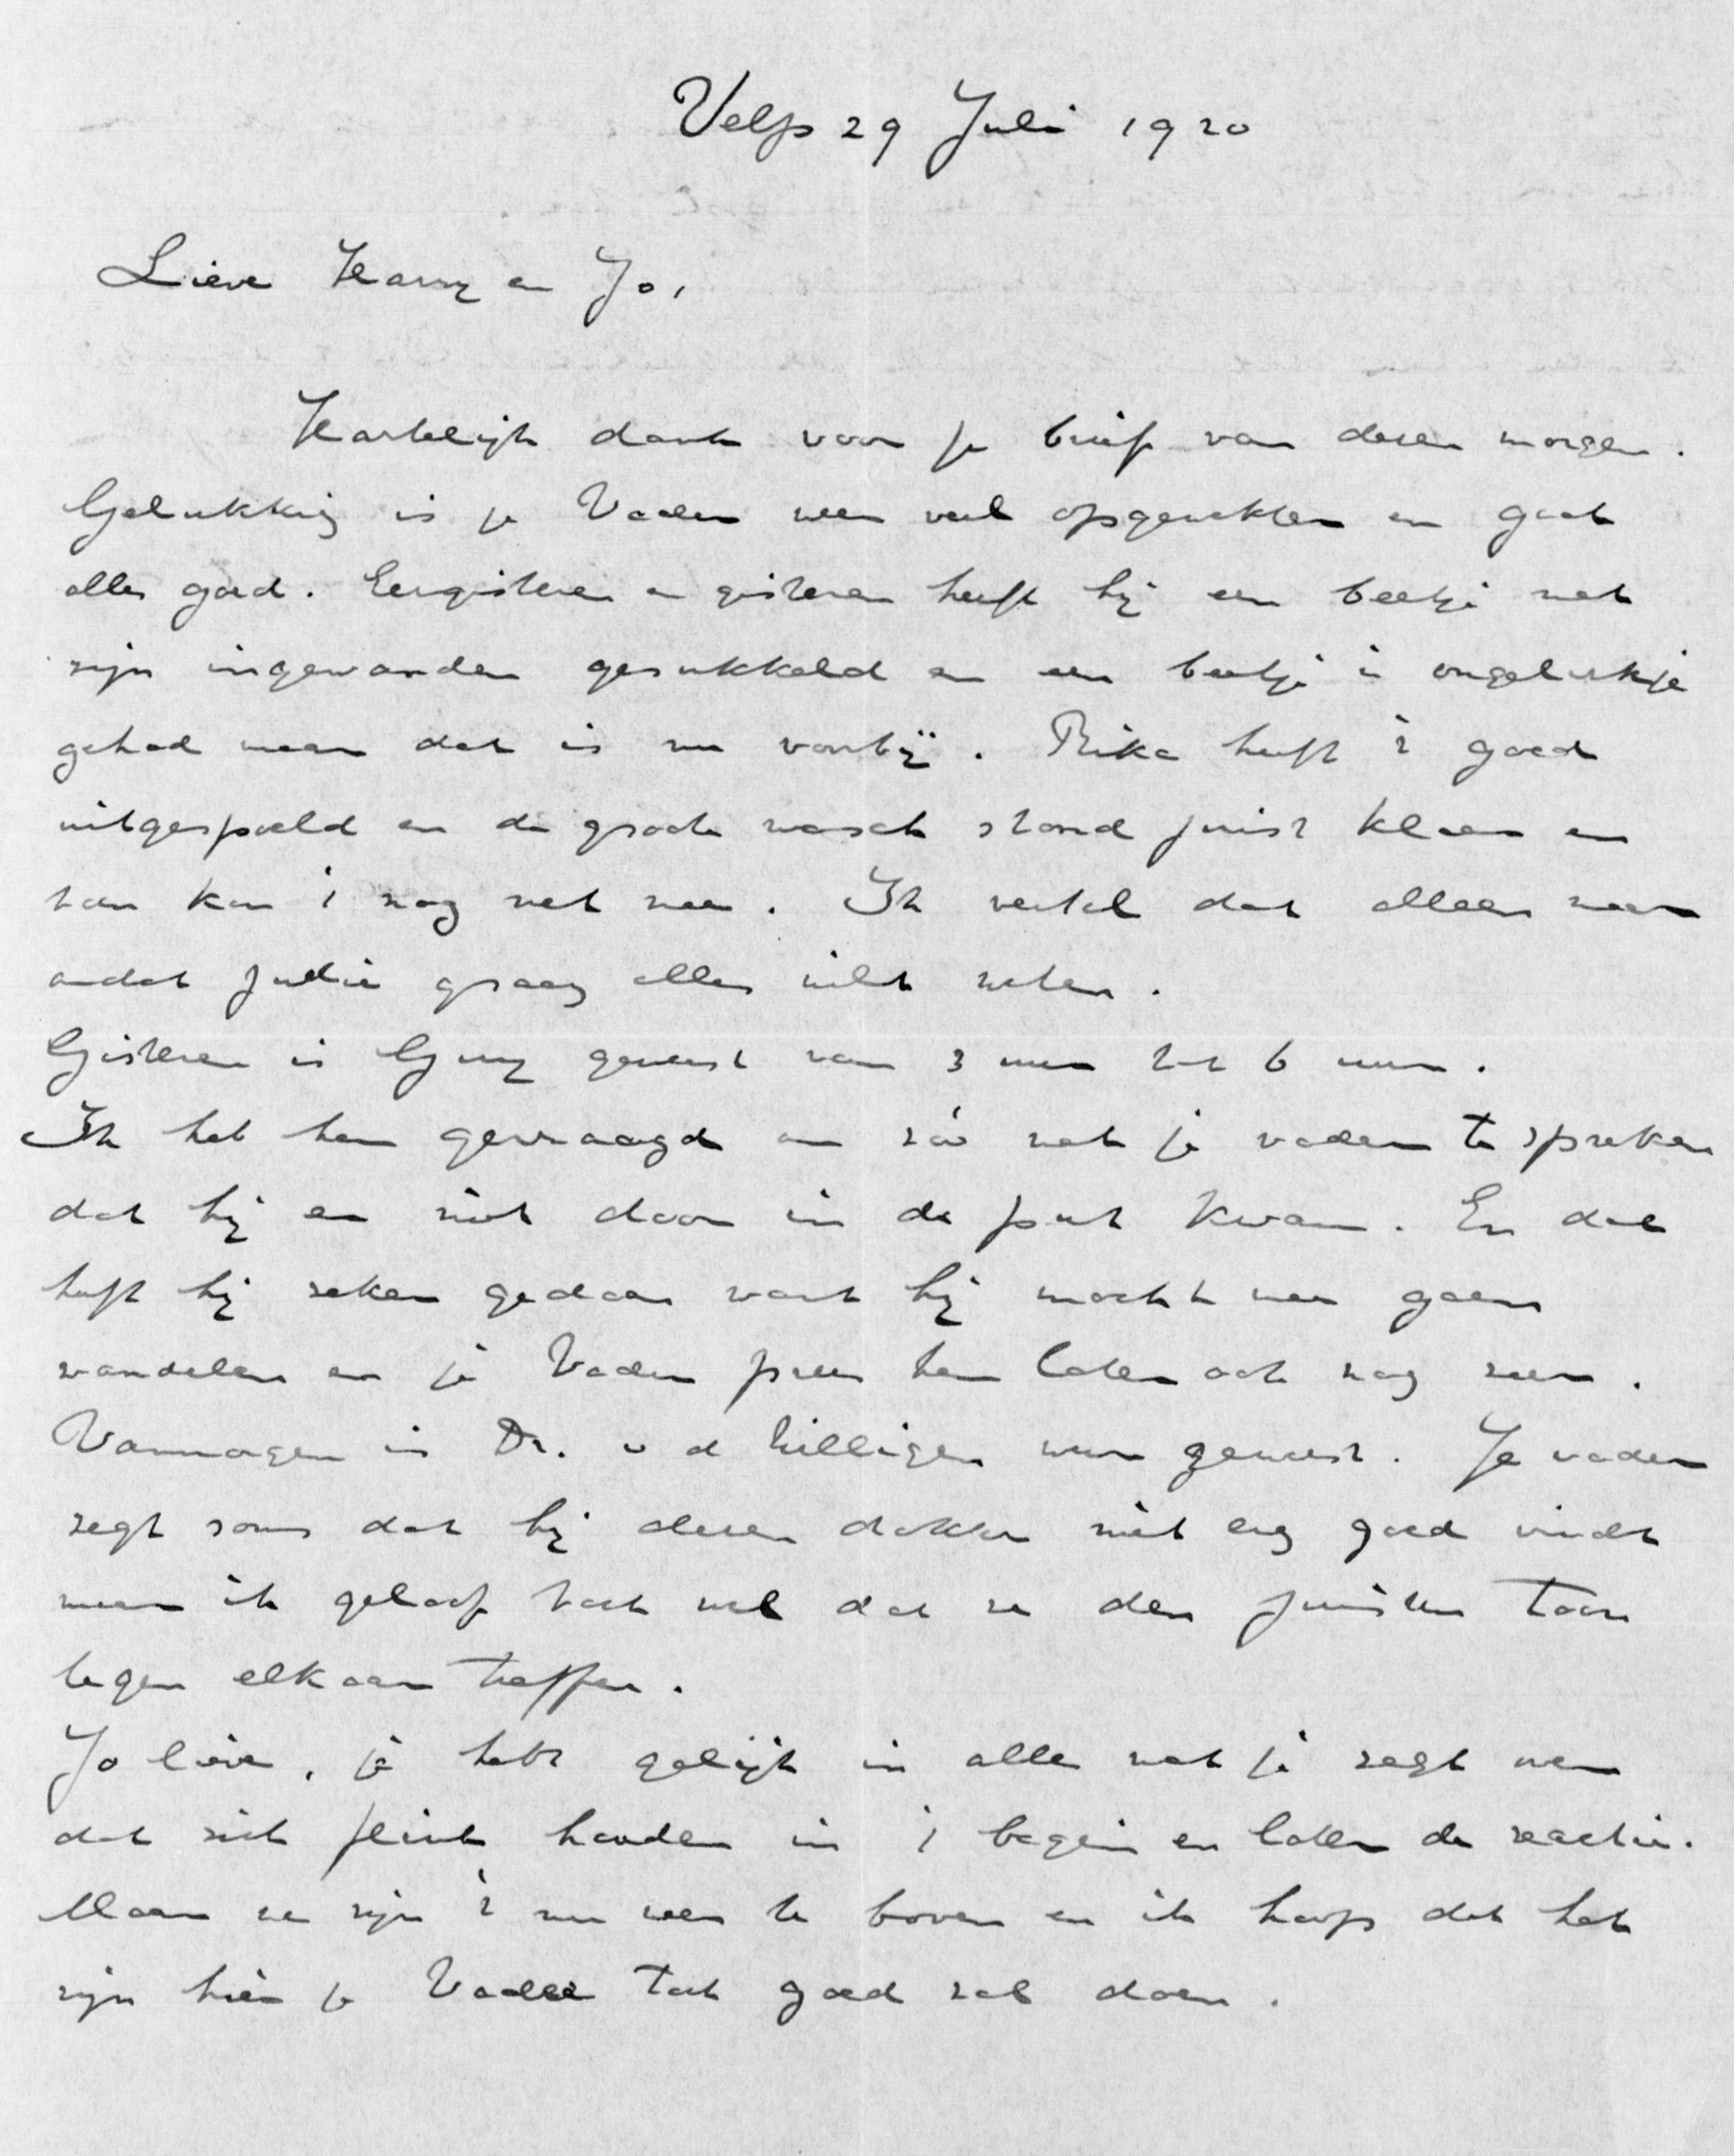 Velp 29 Juli 1920
Lieve Harry en Jo,
Hartelijk dank voor je brief van dezen morgen.
Gelukkig is je Vader weer veel opgewekter en gaat
alles goed. Eergisteren en gisteren heeft hij een beetje met
zijn ingewanden gesukkeld en een beetje 'n ongelukje
gehad maar dat is nu voorbij. Rika heeft 't goed
uitgespoeld en de groote wasch stond juist klaar en
toen kon 't nog net mee. Ik vertel dat alleen maar
omdat jullie graag alles wilt weten.
Gisteren is geweest van 3 uur tot 6 uur.
Ik heb hem gevraagd om zóó met je vader te spreken
dat hij er niet door in de put kwam. En dat
heeft hij zeker gedaan want hij mocht mee gaan
wandelen en je Vader prees hem later ook nog zeer.
Vanmorgen is Dr. v d Hilligen weer geweest. Je vader
zegt soms dat hij dezen dokter niet erg goed vindt
maar ik geloof toch wel dat ze den juisten toon
tegen elkaar treffen.
Jo lieve, je hebt gelijk in alles wat je zegt over
dat zich flink houden in 't begin en later de reactie.
Maar we zijn 't nu weer te boven en ik hoop dat het
zijn hier je Vader toch goed zal doen.